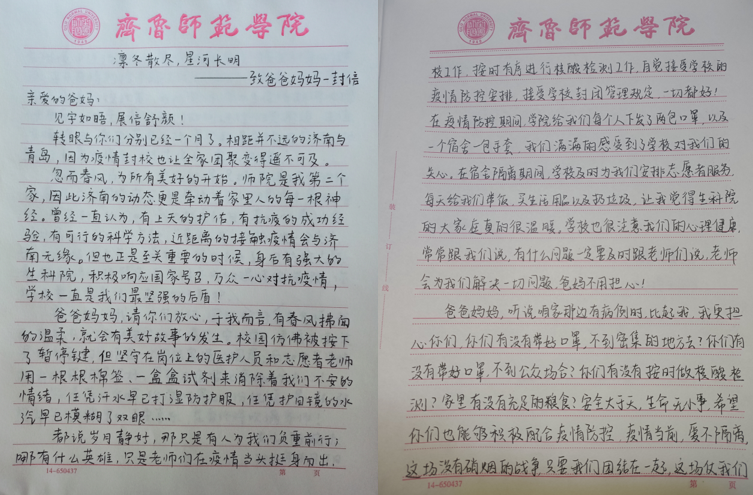 齊魯師範學院
凛冬散尽,星河长明
——致爸爸妈妈一封信
亲爱的爸妈:
见字如晤,展信舒颜!
转眼与你们分别已经一个月了。相距并不远的济南与
青岛,因为疫情封校也让全家团聚变得遥不可及。
忽而春风,为所有美好的开始。师院是我第二个
家,因此济南的动态更是牵动着家里人的每一根神
经。曾经一直认为,有上天的护佑,有抗疫的成功经
验,有可行的科学方法,近距离的接触疫情会与济
南无缘。但也正是至关重要的时候,身后有强大的
生科院,积极响应国家号召,万众一心对抗疫情,
学校一直是我们最坚强的后盾!
爸爸妈妈,请你们放心,于我而言,有春风拂面
的温柔,就会有美好故事的发生。校园仿佛被按下
了暂停键,但坚守在岗位上的医护人员和志愿者老师
用一根根棉签、一盒盒试剂来消除着我们不安的
情绪,任凭汗水早已打湿防护服,任凭护目镜的水
汽早已模糊了双眼……
都说岁月静好,那只是有人为我们负重前行;
哪有什么英雄,只是老师们在疫情当头挺身而出,
14-650437
第 页
齊魯師範學院
核工作,按时有序进行核酸检测工作,自觉接受学校的
疫情防控安排,接受学校封闭管理规定,一切都好!
在疫情防控期间,学院给我们每个人下发了两包口罩,以及
一个宿舍一包手套,我们满满的感受到了学校对我们的
关心。在宿舍隔离期间,学校及时为我们安排志愿者服务,
每天给我们带饭、买生活用品以及扔垃圾,让我觉得生科院
的大家庭真的很温暖,学校也很注意我们的心理健康,
常常跟我们说,有什么问题一定要及时跟老师们说,老师
会为我们解决一切问题,爸妈不用担心!
爸爸妈妈,听说咱家那边有病例时,比起我,我更担
心你们,你们有没有带好口罩,不到密集的地方去?你们有
没有带好口罩,不到公众场合?你们有没有按时做核酸检
测?家里有没有充足的粮食?安全大于天,生命无小事,希望
你们也能够积极配合疫情防控。疫情当前,爱不隔离,
这场没有硝烟的战争只要我们团结在一起,这场仗我们
14-650437
第 页